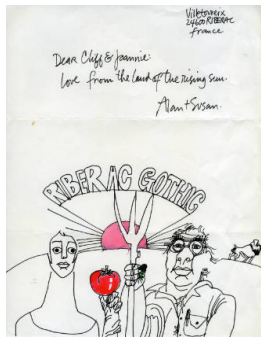 Villetoureix
24600 RIBERAC
France
Dear Cliff & Joannie:
love from the land of the rising sun.
Alan + Susan.
RIBERAC GOTHIC